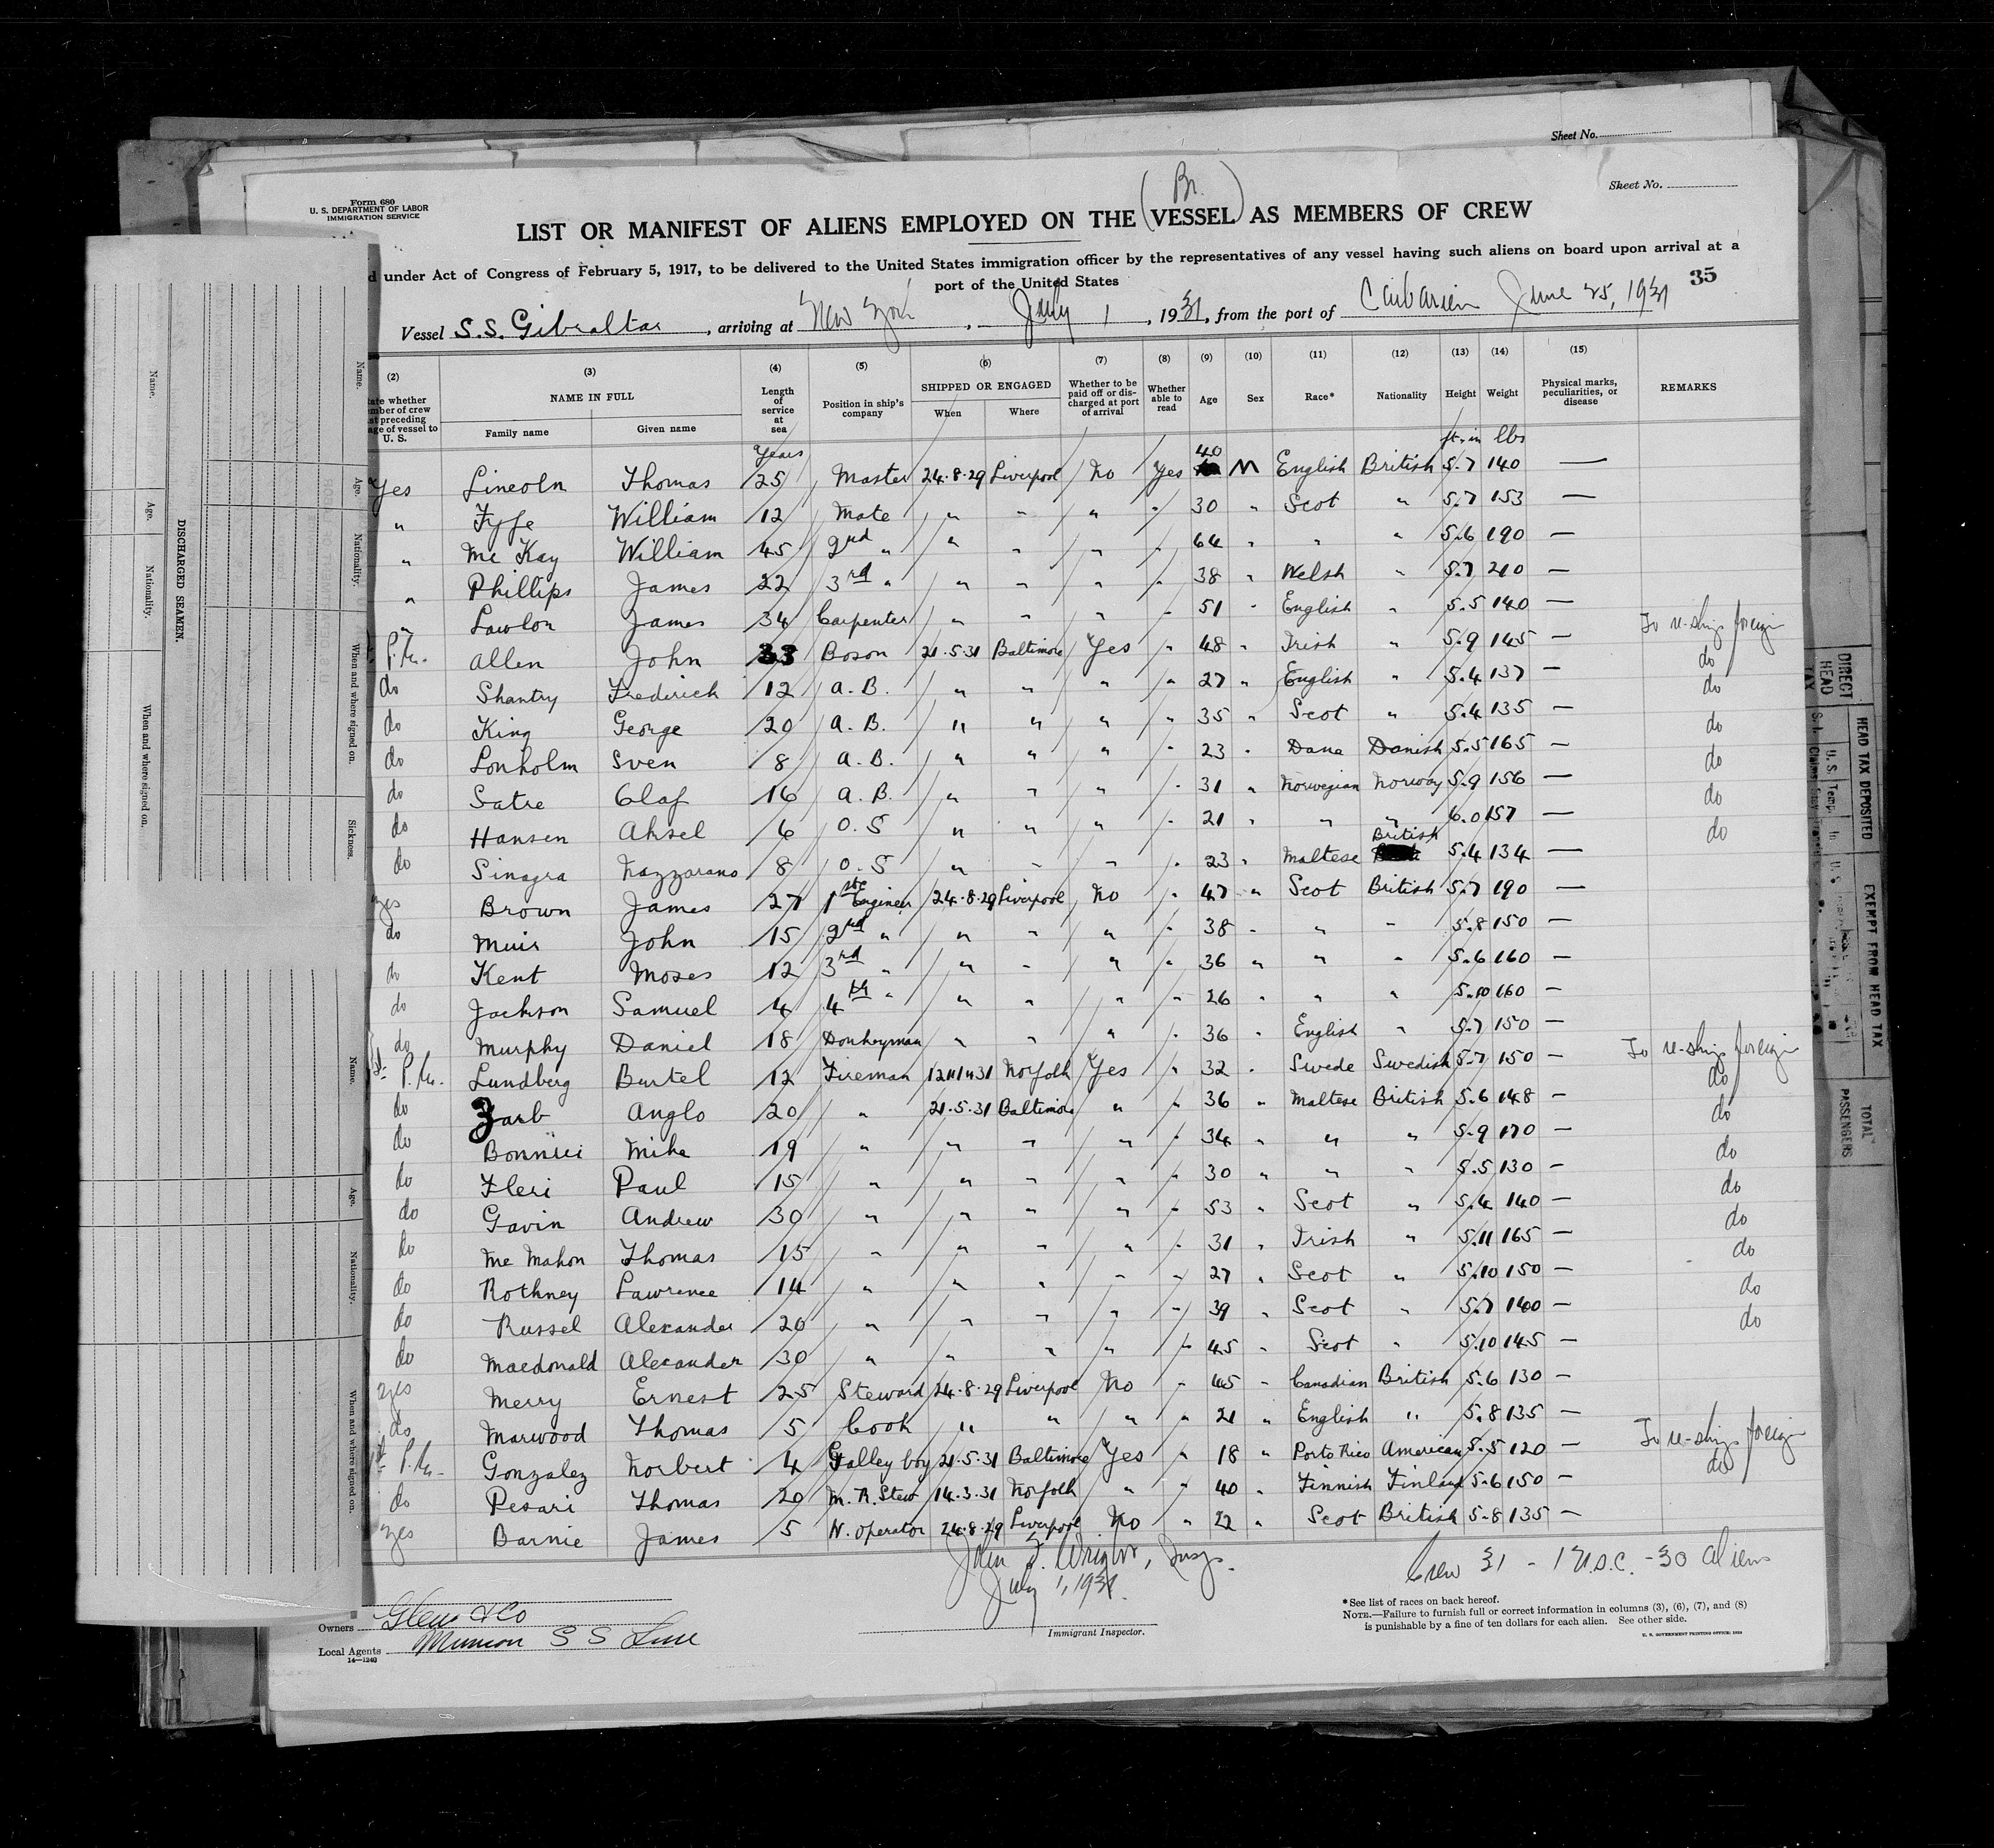 Sheet No.
Form 680
U. S. DEPARTMENT OF LABOR
IMMIGRATION SERVICE
Sheet No.
(Br.)
LIST OR MANIFEST OF ALIENS EMPLOYED ON THE VESSEL AS MEMBERS OF CREW
under Act of Congress of February 5, 1917, to be delivered to the United States immigration officer by the representatives of any vessel having such aliens on board upon arrival at a
port of the United States
35
Vessel S.S. Gibraltar, arriving at New York, July 1, 1931, from the port of Caibarien June 25, 1931
(2) (3) (4) (5) (6) (7) (8) (9) (10) (11) (12) (13) (14) (15)
NAME IN FULL Family name Given name
Length of service at sea
Position in ship's company
SHIPPED OR ENGAGED When Where
Whether to be paid off or discharged at port of arrival
Whether able to read
Age Sex Race* Nationality Height Weight
Physical marks, peculiarities, or disease
REMARKS
Years ft. in lbs
Yes Lincoln Thomas 25 Master 24.8.29 Liverpool No Yes 40 M English British 5.7 140 —
" Fyfe William 12 Mate " " " " 30 " Scot " 5.7 153 —
" Mc Kay William 45 2nd " " " " " 64 " " " 5.6 190 —
" Phillips James 22 3rd " " " " " 38 " Welsh " 5.7 210 —
" Lawlor James 34 Carpenter " " " " 51 " English " 5.5 140 —
Allen John 33 Boson 21.5.31 Baltimore Yes " 48 " Irish " 5.9 145 — To re-ship foreign
do Shantry Frederick 12 A.B. " " " " 27 " English " 5.4 137 — do
do King George 20 A.B. " " " " 35 " Scot " 5.4 135 — do
do Lonholm Sven 8 A.B. " " " " 23 " Dane Danish 5.5 165 — do
do Satre Olaf 16 A.B. " " " " 31 " Norwegian Norway 5.9 156 — do
do Hansen Aksel 6 O.S " " " " 21 " " " 6.0 157 — do
do Sinagra Nazzarano 8 O.S " " " " 23 " Maltese British 5.4 134 — do
yes Brown James 27 1st Engineer 24.8.29 Liverpool No " 47 " Scot British 5.7 190 —
do Muir John 15 2nd " " " " " 38 " " " 5.8 150 —
do Kent Moses 12 3rd " " " " " 36 " " " 5.6 160 —
do Jackson Samuel 4 4th " " " " " 26 " " " 5.10 160 —
do Murphy Daniel 18 Donkeyman " " " " 36 " English " 5.7 150 —
Lundberg Bertel 12 Fireman Norfolk Yes " 32 " Swede Swedish 5.7 150 — To re-ship foreign
do Zarb Anglo 20 " 21.5.31 Baltimore " " 36 " Maltese British 5.6 148 — do
do Bonnici Mike 19 " " " " " 34 " " " 5.9 170 — do
do Fleri Paul 15 " " " " " 30 " " " 5.5 130 — do
do Gavin Andrew 30 " " " " " 53 " Scot " 5.4 140 — do
do Mc Mahon Thomas 15 " " " " " 31 " Irish " 5.11 165 — do
do Rothney Lawrence 14 " " " " " 27 " Scot " 5.10 150 — do
do Russel Alexander 20 " " " " " 39 " Scot " 5.7 140 — do
do Macdonald Alexander 30 " " " " " 45 " Scot " 5.10 145 — do
yes Merry Ernest 25 Steward 24.8.29 Liverpool No " 45 " Canadian British 5.6 130 —
do Marwood Thomas 5 Cook " " " " 21 " English " 5.8 135 —
Gonzalez Norbert 4 Galley boy 21.5.31 Baltimore Yes " 18 " Porto Rico American 5.5 120 — To re-ship foreign
do Pesari Thomas 20 M.R. Stew 14.3.31 Norfolk " " 40 " Finnish Finland 5.6 150 — do
yes Barnie James 5 W. operator 24.8.29 Liverpool No " 22 " Scot British 5.8 135 —
John J. Wright, Insp.
July 1, 1931.
Crew 31 - 1 U.S.C. - 30 aliens
Owners
Local Agents Munson S S Line
14—1240
Immigrant Inspector.
*See list of races on back hereof.
NOTE.—Failure to furnish full or correct information in columns (3), (6), (7), and (8)
is punishable by a fine of ten dollars for each alien. See other side.
DISCHARGED SEAMEN.
Name. Age. Nationality. When and where signed on.
Name. Age. Nationality. When and where signed on. Sickness.
Name. Age. Nationality. When and where signed on.
DIRECT HEAD TAX
HEAD TAX DEPOSITED
EXEMPT FROM HEAD TAX
TOTAL PASSENGERS